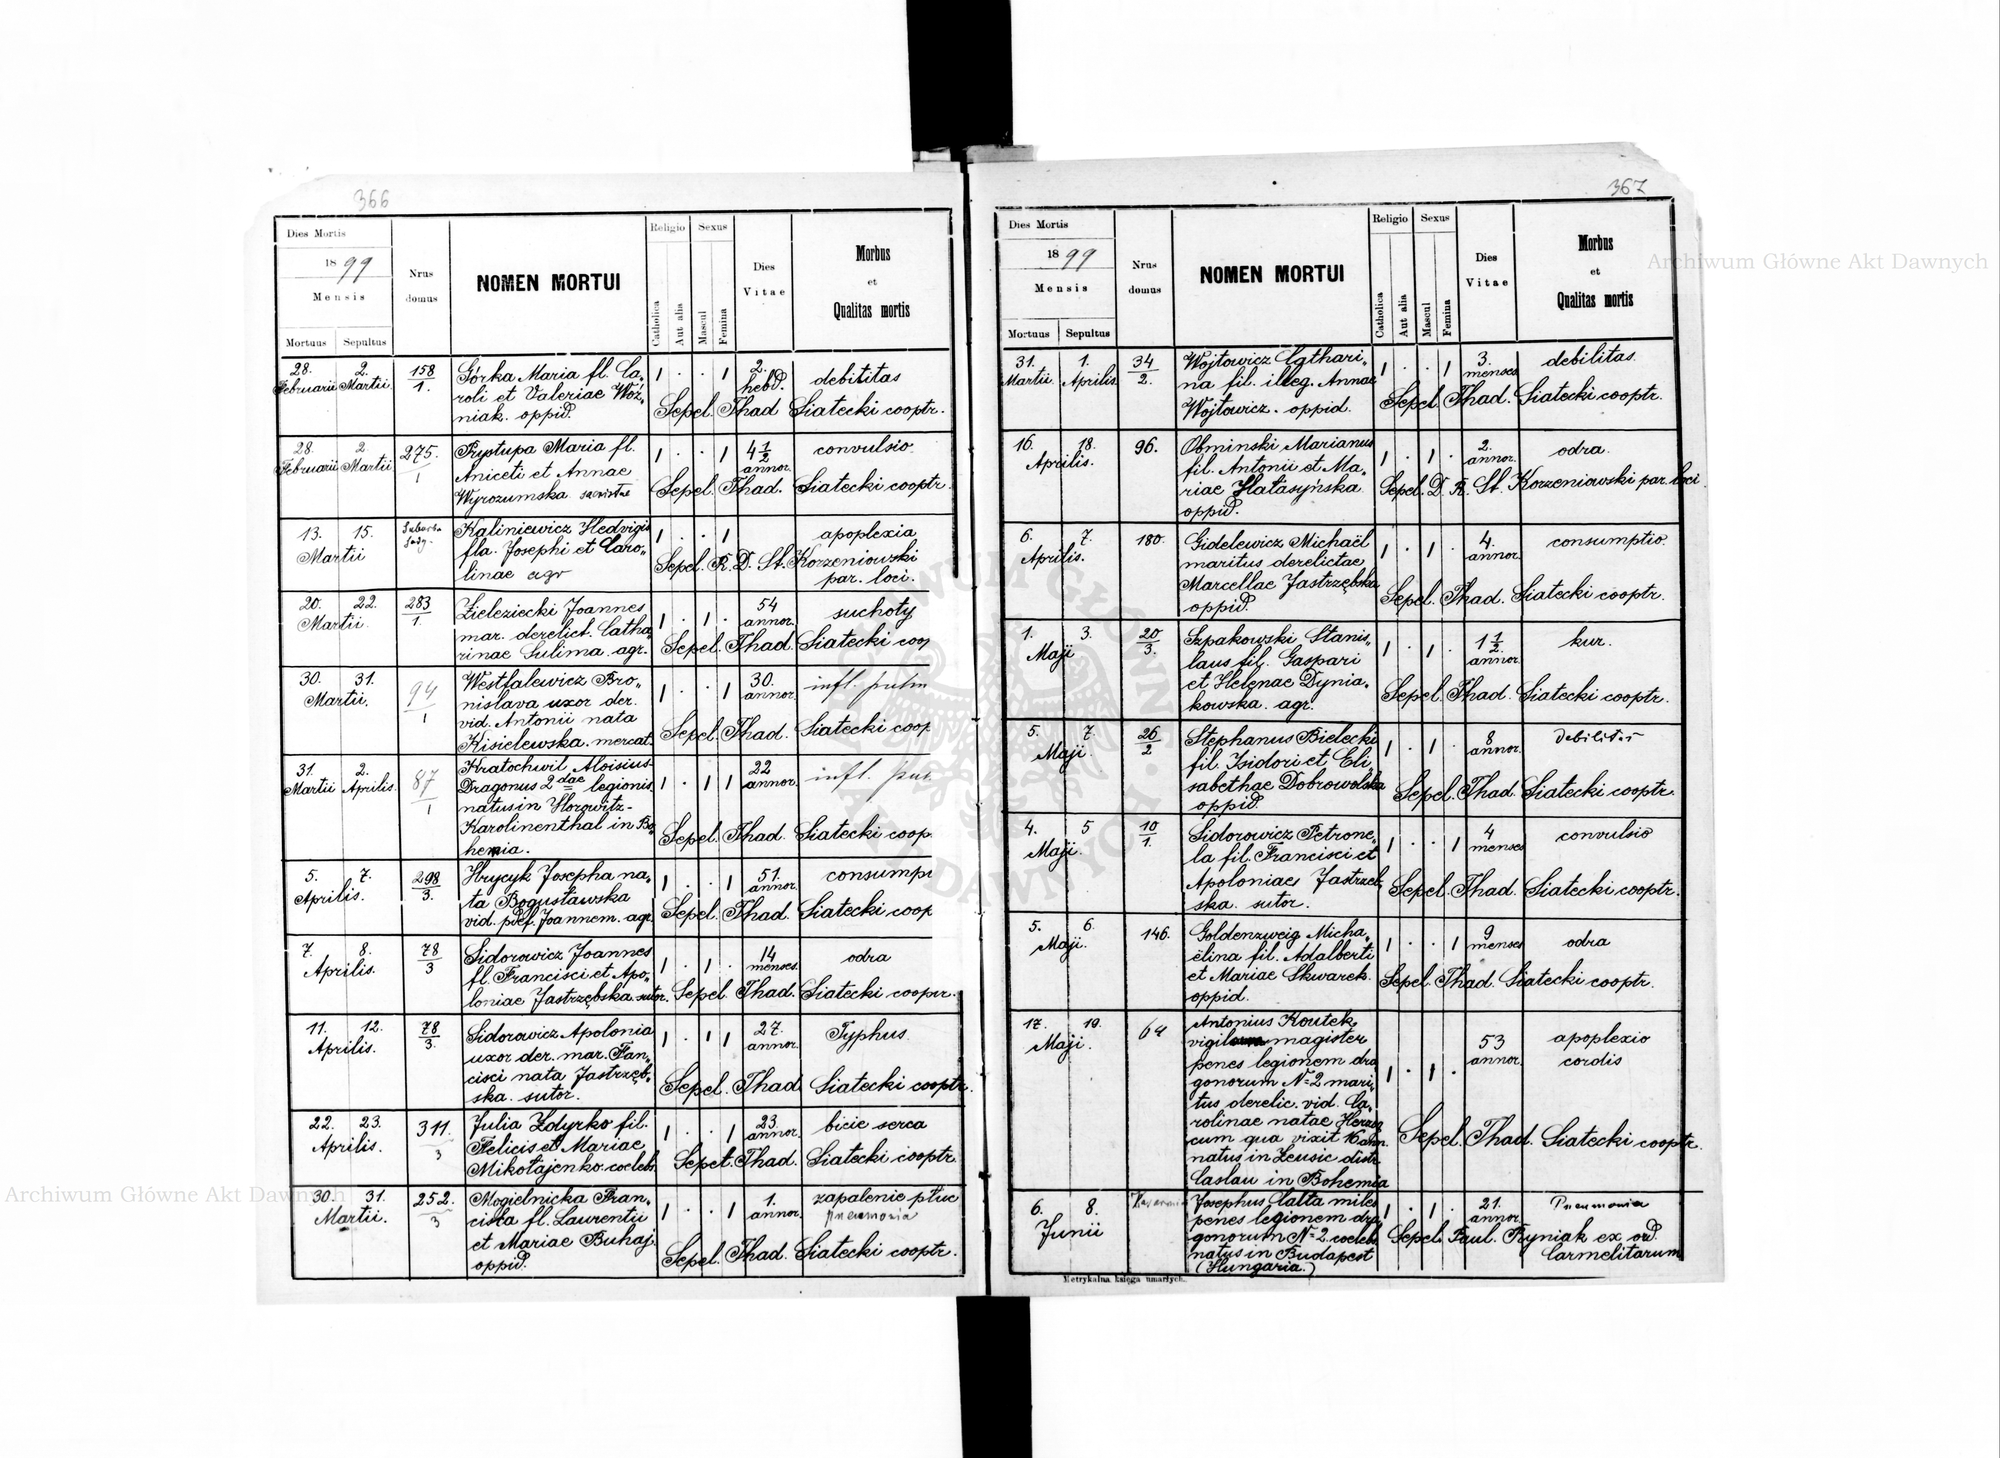 366
Dies Mortis
1899
Mensis
Mortuus Sepultus
Nrus domus
NOMEN MORTUI
Religio
Catholica
Aut alia
Sexus
Mascul
Femina
Dies Vitae
Morbus
et
Qualitas mortis
28. Februarii 2. Martii. 158/1.
Górka Maria fl. Ca„
roli et Valeriae Woź„
niak. oppid.
1 . . 1 2. hebd. debilitas
Sepel. Thad Siatecki cooptr.
28. Februarii 2. Martii 275./1
Prystupa Maria fl.
Aniceti et Annae
Wyrozumska
1 . . 1 4 1/2 annor. convulsio.
Sepel. Thad. Siatecki cooptr
13. 15. Martii
Kaliniewicz Hedvigis
fla. Josephi et Caro„
linae agr
1 . . 1 apoplexia
Sepel. R. D. St. Korzeniowski
par. loci.
20. 22. Martii. 283/1.
Zieleziecki Joannes
mar. derelict. Catha„
rinae Sulima. agr.
1 . 1 . 54 annor. suchoty
Sepel. Thad. Siatecki coop
30. 31. Martii. 94/1
Westfalewicz Bro„
nislava uxor der.
vid. Antonii nata
Kisielewska. mercat.
1 . . 1 30. annor. infl. pulm
Sepel. Thad. Siatecki coop
31. Martii 2. Aprilis. 87/1
Kratochwil Aloisius
Dragonus 2dae legionis
natus in Horowitz-
Karolinenthal in Bo„
hemia.
1 . 1 1 22 annor. infl. pul
Sepel. Thad. Siatecki coop.
5. 7. Aprilis. 298/3.
Hrycyk Josepha na„
ta Bogusławska
vid. pdef. Joannem. agr.
1 . . 1 51. annor. consumpt
Sepel. Thad. Siatecki coop
7. 8. Aprilis. 78/3
Sidorowicz Joannes
fl. Francisci et Apo„
loniae Jastrzębska. sutor.
1 . 1 . 14 menses. odra
Sepel. Thad. Siatecki cooptr.
11. 12. Aprilis. 78/3.
Sidorowicz Apolonia
uxor der. mar. Fran„
cisci nata Jastrzęb„
ska. sutor.
1 . 1 1 27. annor. Typhus.
Sepel. Thad Siatecki cooptr.
22. 23. Aprilis. 311./3
Julia Zdyrko fil.
Felicis et Mariae
Mikołajenko. coelebs.
1 . . 1 23. annor. bicie serca
Sepel. Thad. Siatecki cooptr
30. 31. Martii. 252./3
Mogielnicka Fran„
cisca fl. Laurentii
et Mariae Buhaj.
oppid.
1 . . 1 1. annor. zapalenie płuc
pneumonia
Sepel. Thad. Siatecki cooptr.
367
Dies Mortis
1899
Mensis
Mortuus Sepultus
Nrus domus
NOMEN MORTUI
Religio
Catholica
Aut alia
Sexus
Mascul
Femina
Dies Vitae
Morbus
et
Qualitas mortis
31. Martii. 1. Aprilis 34/2.
Wojtowicz Cathari„
na fil. illeg. Annae
Wojtowicz. oppid.
1 . . 1 3. menses debilitas.
Sepel. Thad. Siatecki cooptr.
16. 18. Aprilis. 96.
Obminski Marianus
fil. Antonii et Ma„
riae Hałasyńska.
oppid.
1 . 1 . 2. annor. odra.
Sepel. D. R. St. Korzeniowski par. loci.
6. 7. Aprilis. 180.
Gidelewicz Michaël
maritus derelictae
Marcellae Jastrzębska
oppid.
1 . 1 . 4. annor. consumptio.
Sepel. Thad. Siatecki cooptr.
1. 3. Maji 20/3.
Szpakowski Stanis„
laus fil. Gaspari
et Helenae Dynia„
kowska. agr.
1 . 1 . 1 1/2. annor. kur.
Sepel. Thad. Siatecki cooptr.
5. 7. Maji 26/2
Stephanus Bielecki
fil. Isidori et Eli„
sabethae Dobrowolska
oppid.
1 . 1 . 8 annor. debilitas
Sepel. Thad. Siatecki cooptr.
4. 5 Maji. 10/1.
Sidorowicz Petrone„
la fil. Francisci et
Apoloniae Jastrzęb„
ska. sutor.
1 . . 1 4 menses convulsio
Sepel. Thad. Siatecki cooptr.
5. 6. Maji. 146.
Goldenzweig Micha„
ëlina fil. Adalberti
et Mariae Skwarek.
oppid.
1 . . 1 9 menses odra
Sepel. Thad. Siatecki cooptr.
17. 19. Maji. 64
Antonius Koutek
vigil magister
penes legionem dra„
gonorum No 2 mari„
tus derelic. vid. Ca„
rolinae natae Herzog
cum qua vixit 16 ann.
natus in Zeusic distr.
Caslau in Bohemia
1 . 1 . 53 annor. apoplexio
cordis
Sepel. Thad. Siatecki cooptr.
6. 8. Junii
Josephus Calta miles
penes legionem dra„
gonorum No 2. coelebs
natus in Budapest
(Hungaria.)
1 . 1 . 21. annor. Pneumonia
Sepel. Paul. Ryniak ex ord.
Carmelitarum
Metrykalna księga umarłych.
Archiwum Główne Akt Dawnych
Archiwum Główne Akt Dawnych
ARCHIWUM GŁÓWNE AKT DAWNYCH